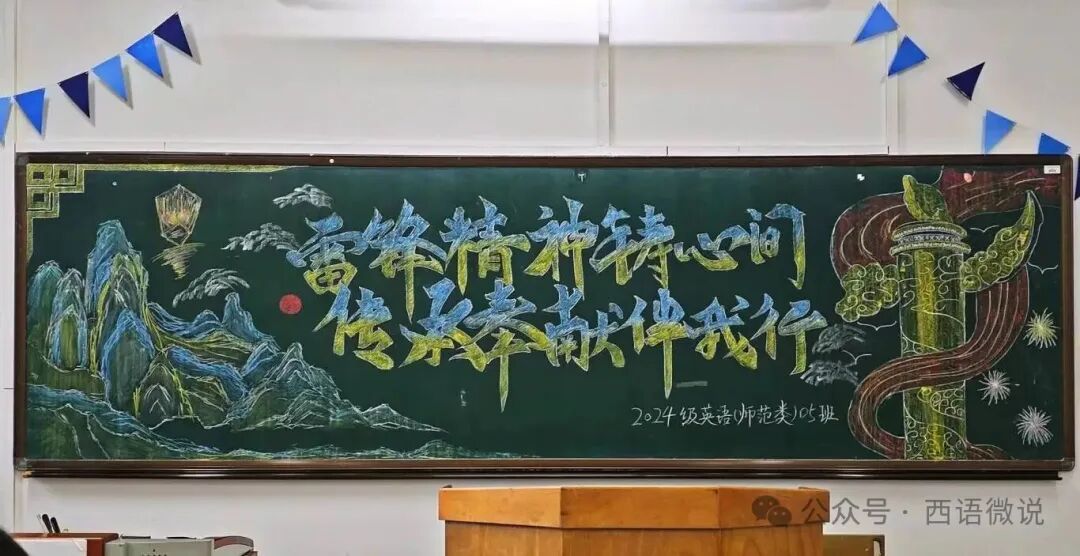 雷锋精神铸心间
传承奉献伴我行
2024级英语(师范类)05班
公众号·西语微说